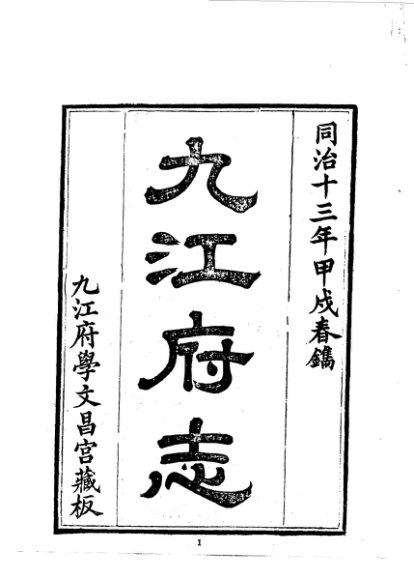 同治十三年甲戌春鐫
九江府志
九江府學文昌宮藏板
1